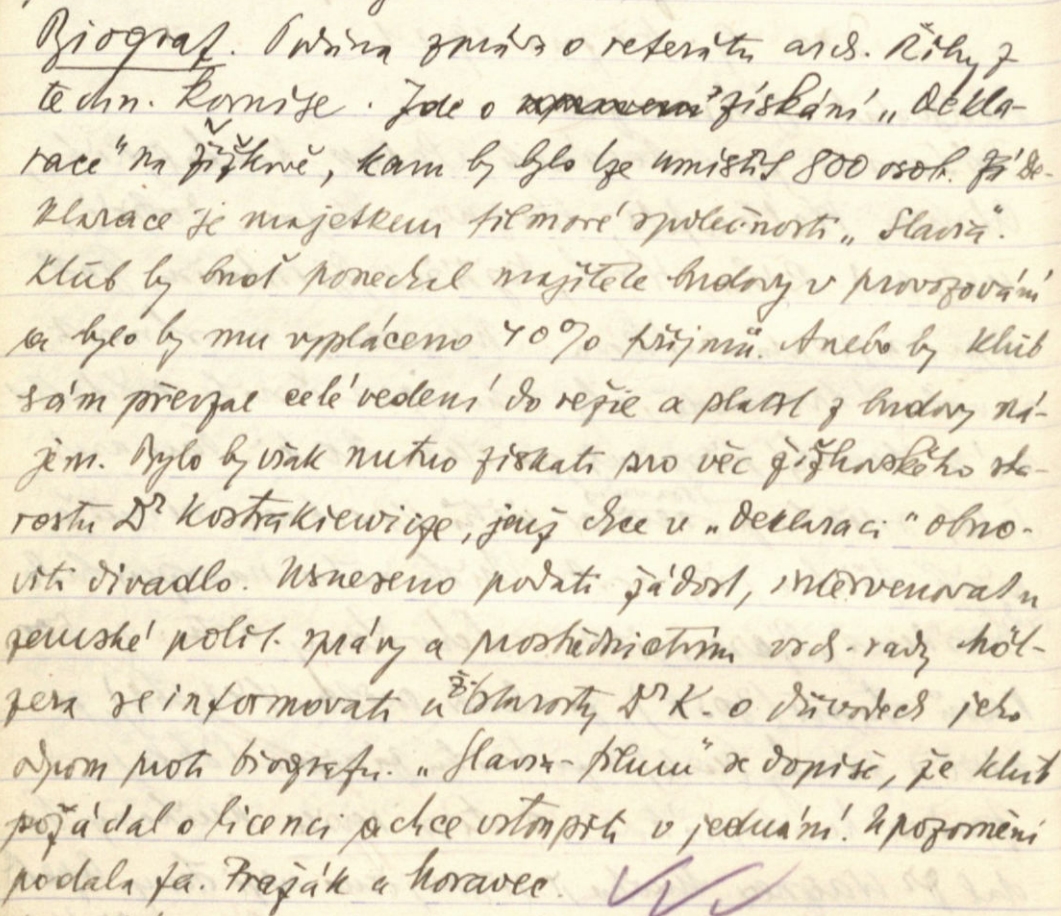 Biograf. Podána zpráva o referátu arch. Říhy z
techn. komise. Jde o získání „Dekla-
race" na Žižkově, kam by bylo lze umístit 800 osob. De-
klarace je majetkem filmové společnosti „Slavia".
Klub by buď ponechal majitele budovy v provozování
a bylo by mu vypláceno 40% příjmů. Anebo by Klub
sám převzal celé vedení do režie a platil z budovy ná-
jem. Bylo by však nutno získati pro věc žižkovského sta-
rostu Dr Kostrakiewicze, jenž chce v „Deklaraci" obno-
viti divadlo. Usneseno podati žádost, intervenovat u
zemské polit. správy a prostřednictvím vrch. rady Höl-
zera se informovati u ž. starosty Dr K. o důvodech jeho
odporu proti biografu. „Slavia-filmu" se dopíše, že Klub
požádal o licenci a chce vstoupiti v jednání. Upozornění
podala fa. Pražák a Moravec.